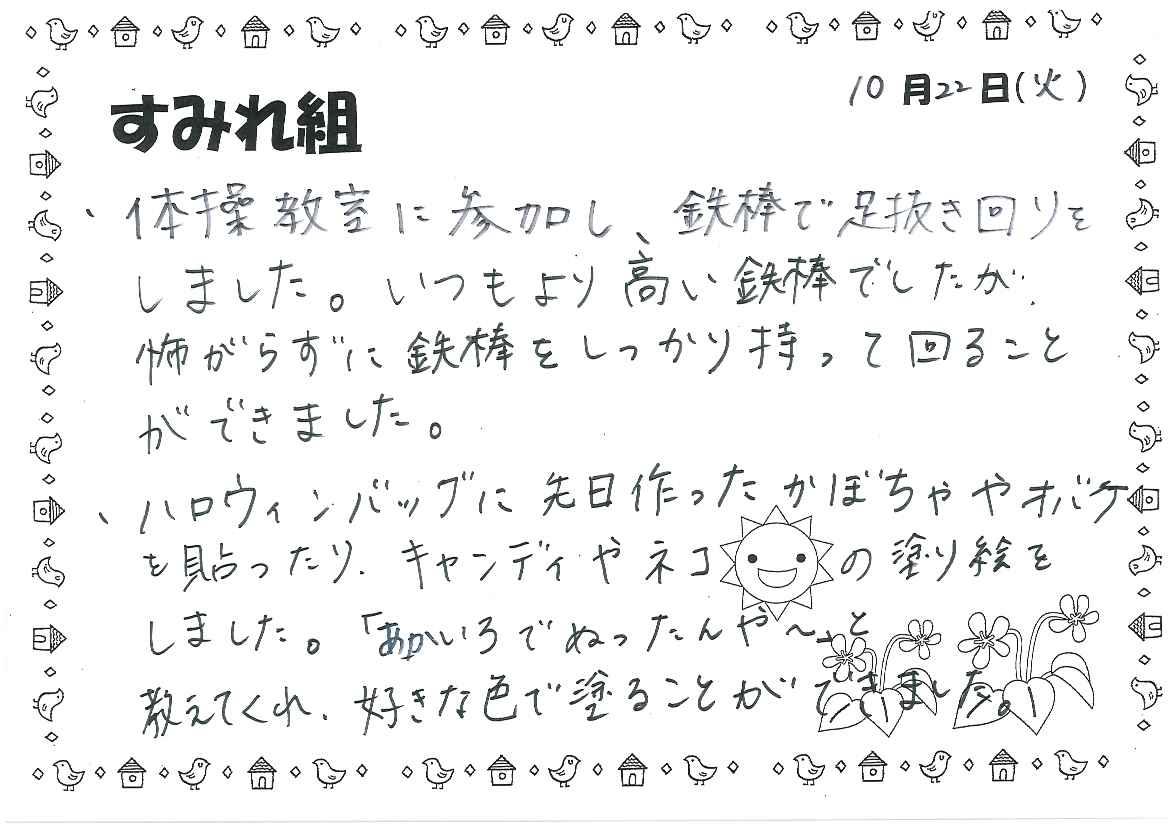 10月22日(火)
すみれ組
、体操教室に参加し、鉄棒で足抜き回りを
しました。いつもより高い鉄棒でしたが、
怖がらずに鉄棒をしっかり持って回ること
ができました。
、ハロウィンバッグに先日作ったかぼちゃやオバケ
を貼ったり、キャンディやネコの塗り絵を
しました。「あかいろでぬったんや～」と
教えてくれ、好きな色で塗ることができました。